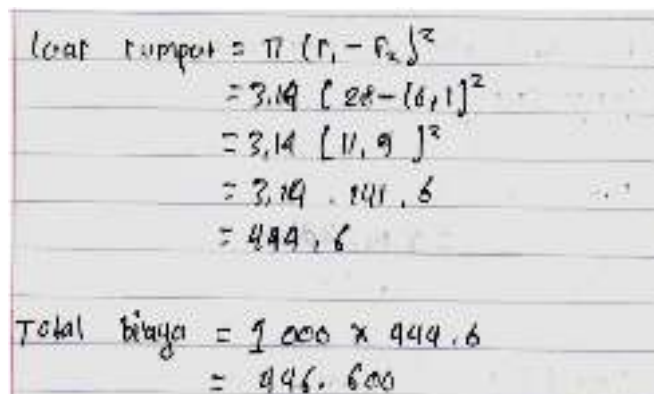 luas rumput = π (r₁ - r₂)²
= 3.14 [28-16,1]²
= 3,14 [11,9]²
= 3,14 . 141,6
= 444,6
Total biaya = 1 000 × 444.6
= 446.600